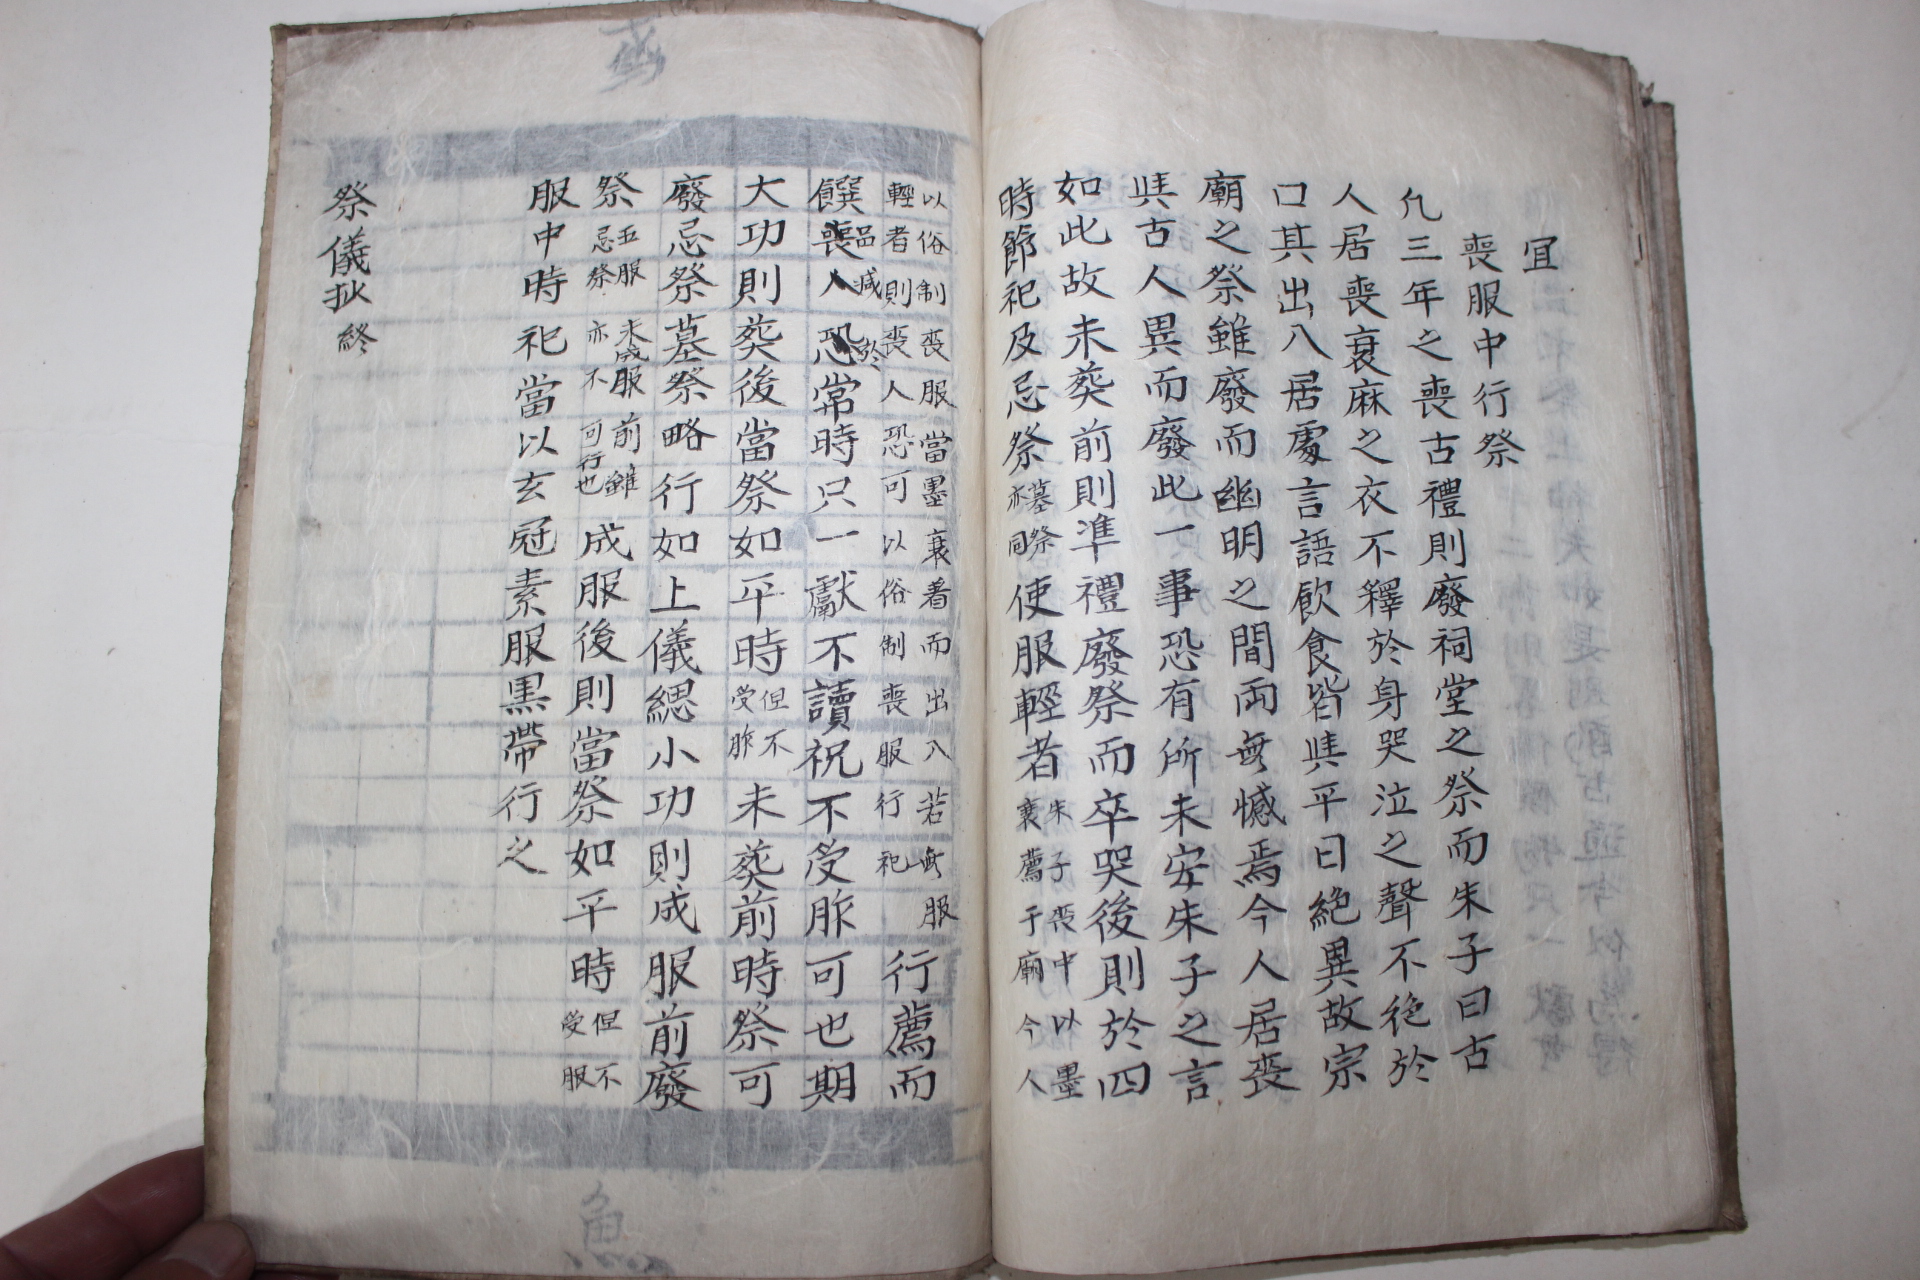 宜
喪服中行祭
凢三年之喪古禮則廢祠堂之祭而朱子曰古
人居喪衰麻之衣不釋於身哭泣之聲不絶於
口其出入居處言語飮食皆與平日絶異故宗
廟之祭雖廢而幽明之間兩無憾焉今人居喪
與古人異而廢此一事恐有所未安朱子之言
如此故未葬前則準禮廢祭而卒哭後則於四
時節祀及忌祭墓祭亦同使服輕者朱子喪中以墨衰薦于廟今人
以俗制喪服當墨衰着而出入若無服輕者則喪人恐可以俗制喪服行祀行薦而
饌品減於常時只一獻不讀祝不受胙可也期
大功則葬後當祭如平時但不受胙未葬前時祭可
廢忌祭墓祭略行如上儀緦小功則成服前廢
祭五服未成服前雖忌祭亦不可行也成服後則當祭如平時但不受服
服中時祀當以玄冠素服黒帶行之
祭儀抄終